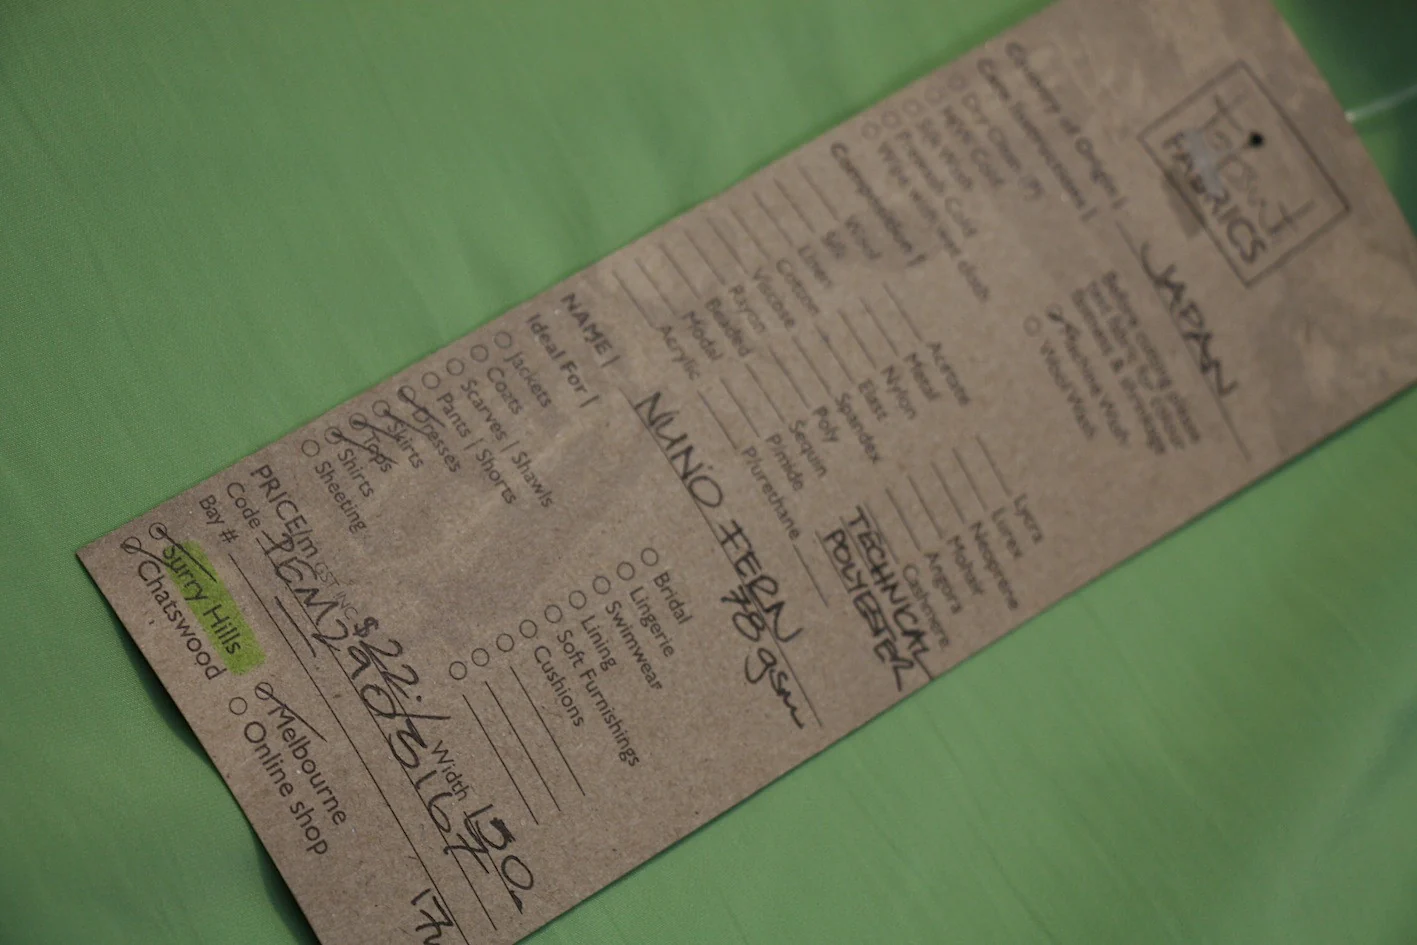 FABRICS
Country of Origin | JAPAN
Care Instructions |
Dry Clean (P)
H/W Cold
Silk Wash
Dreamish Cold
Wipe with wet cloth
Before cutting please
test fabric for colour
Machine Wash
Wool Wash
Composition |
Wool
Silk
Linen
Cotton
Viscose
Rayon
Beaded
Modal
Acrylic
Acetate
Metal
Nylon
Elast
Spandex
Poly
Sequin
Pimide
Plurethane
Lycra
Lurex
Neoprene
Mohair
Angora
Cashmere
TECHNICAL
POLYESTER
NAME | NUNO FERN
78 gsm
Ideal For |
Jackets
Coats
Scarves | Shawls
Pants | Shorts
Dresses
Skirts
Tops
Shirts
Sheeting
Bridal
Lingerie
Swimwear
Lining
Soft Furnishings
Cushions
PRICE/m GST INC $22.- Width 150
Code
Bay #
Surry Hills
Chatswood
Melbourne
Online shop